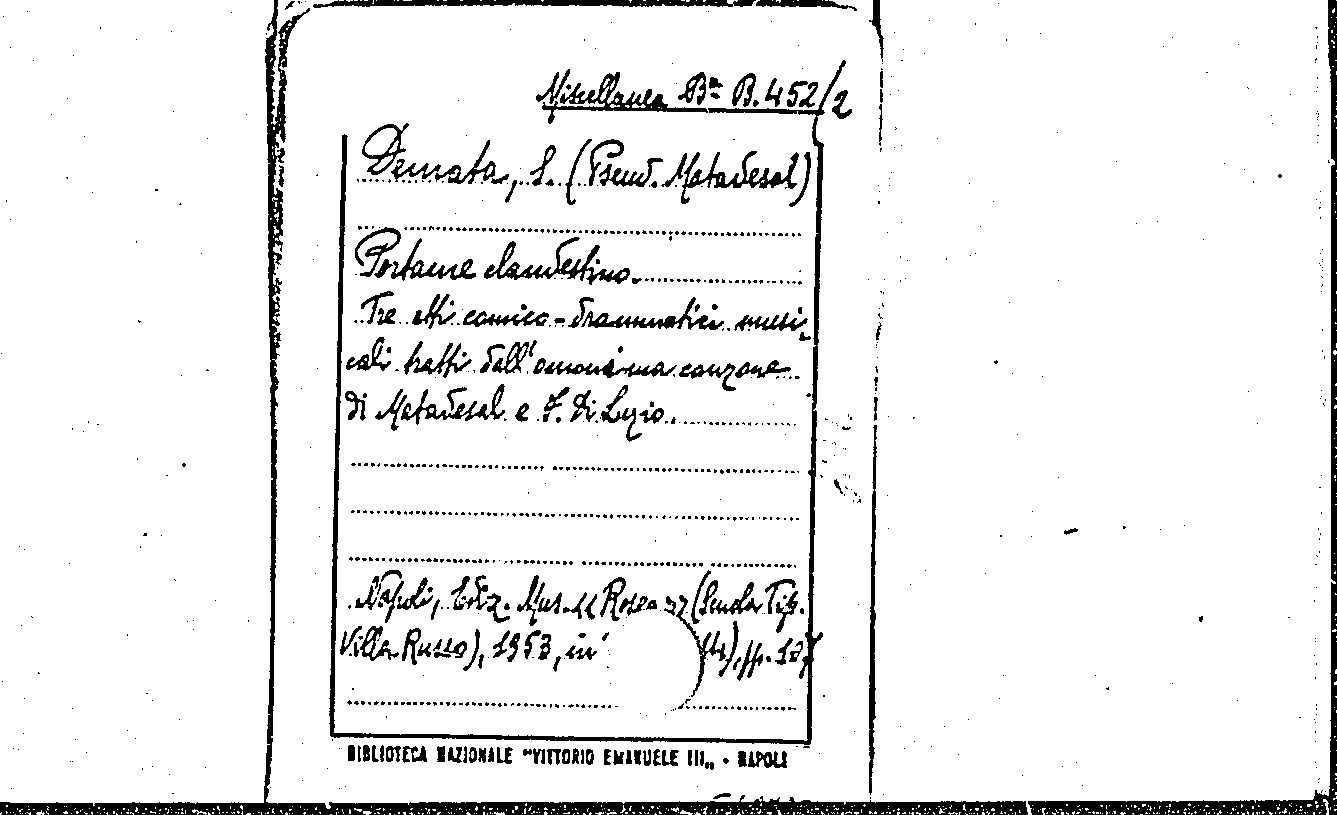 Miscellanea Bª B.452/2
Demata, S. (Pseud. Matadesal)
Portame clandestino.
Tre atti comico-drammatici musi-
cali tratti dall'omonima canzone
di Matadesal e F. Di Luzio.
Napoli, Ediz. Mus. (Scuola Tip.
Villa Russo), 1953, in pp. 107
BIBLIOTECA NAZIONALE "VITTORIO EMANUELE III„ - NAPOLI